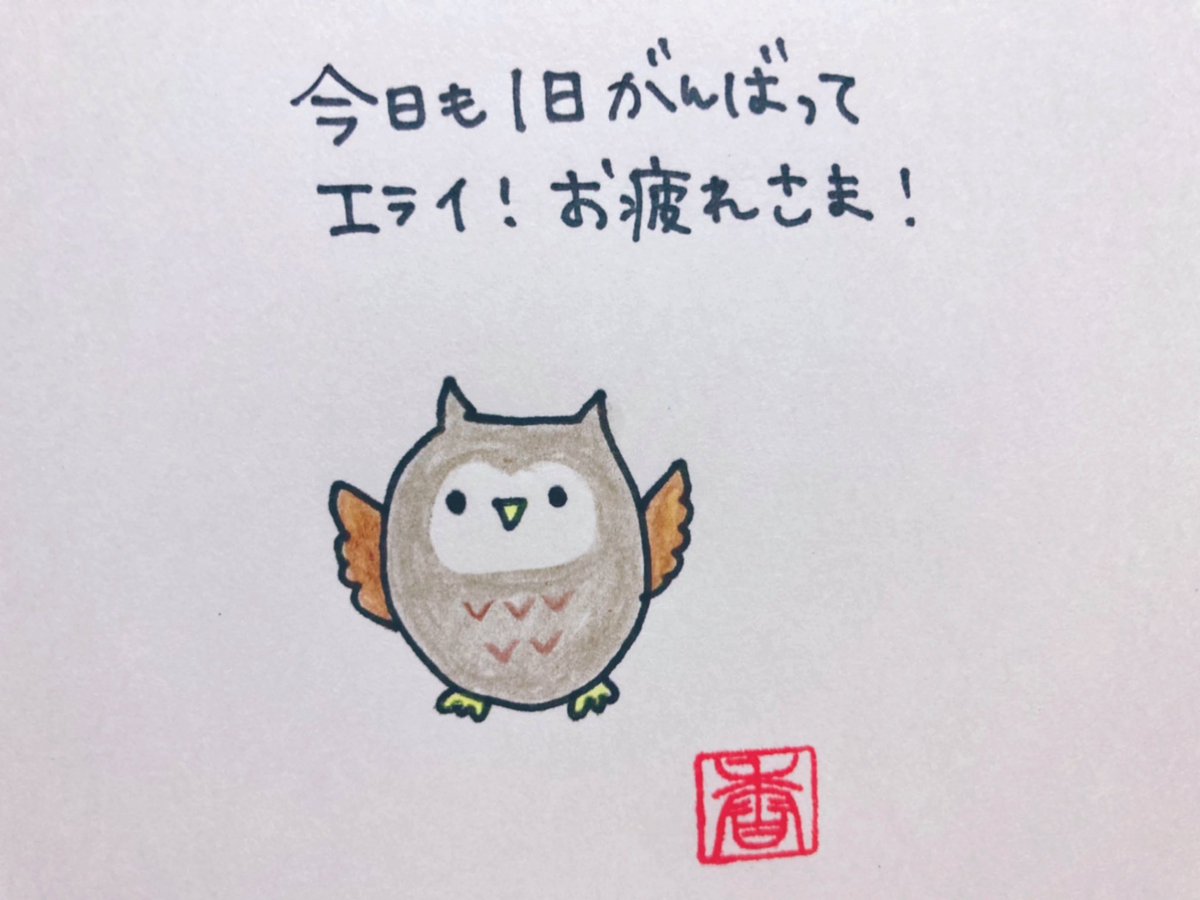 今日も1日がんばって
エライ！お疲れさま！
香